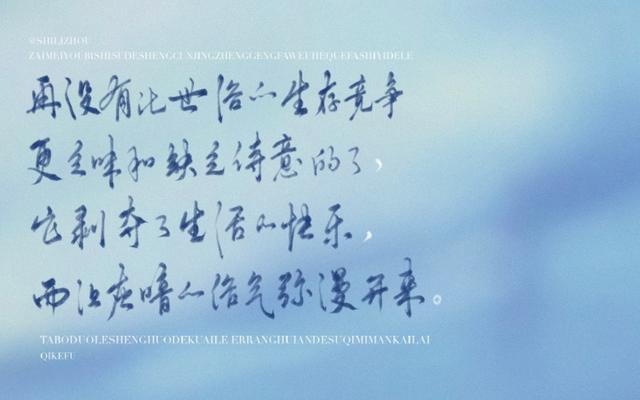 @SHILIZHOU
ZAIMEIYOUBISHISUDESHENGCUNJINGZHENGGENGFAWEIHEQUEFASHIYIDELE
再没有比世俗的生存竞争
更乏味和缺乏诗意的了，
它剥夺了生活的快乐，
而让灰暗的俗气弥漫开来。
TABODUOLESHENGHUODEKUAILE ERRANGHUIANDESUQIMIMANKAILAI
QIKEFU